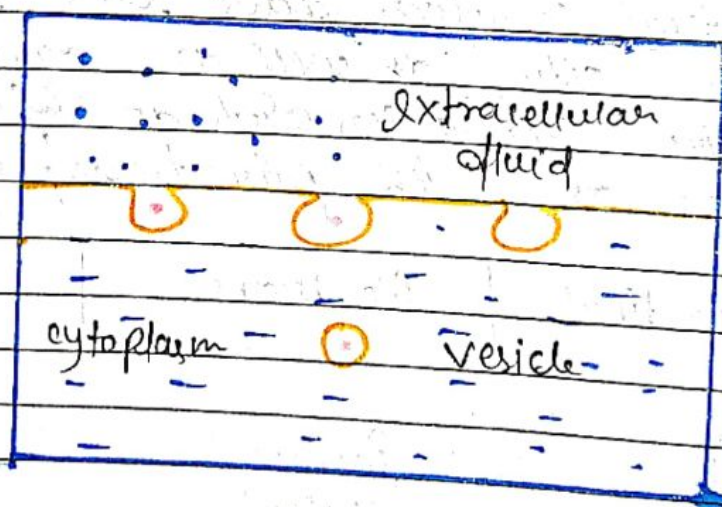 extracellular
fluid
cytoplasm
vesicle